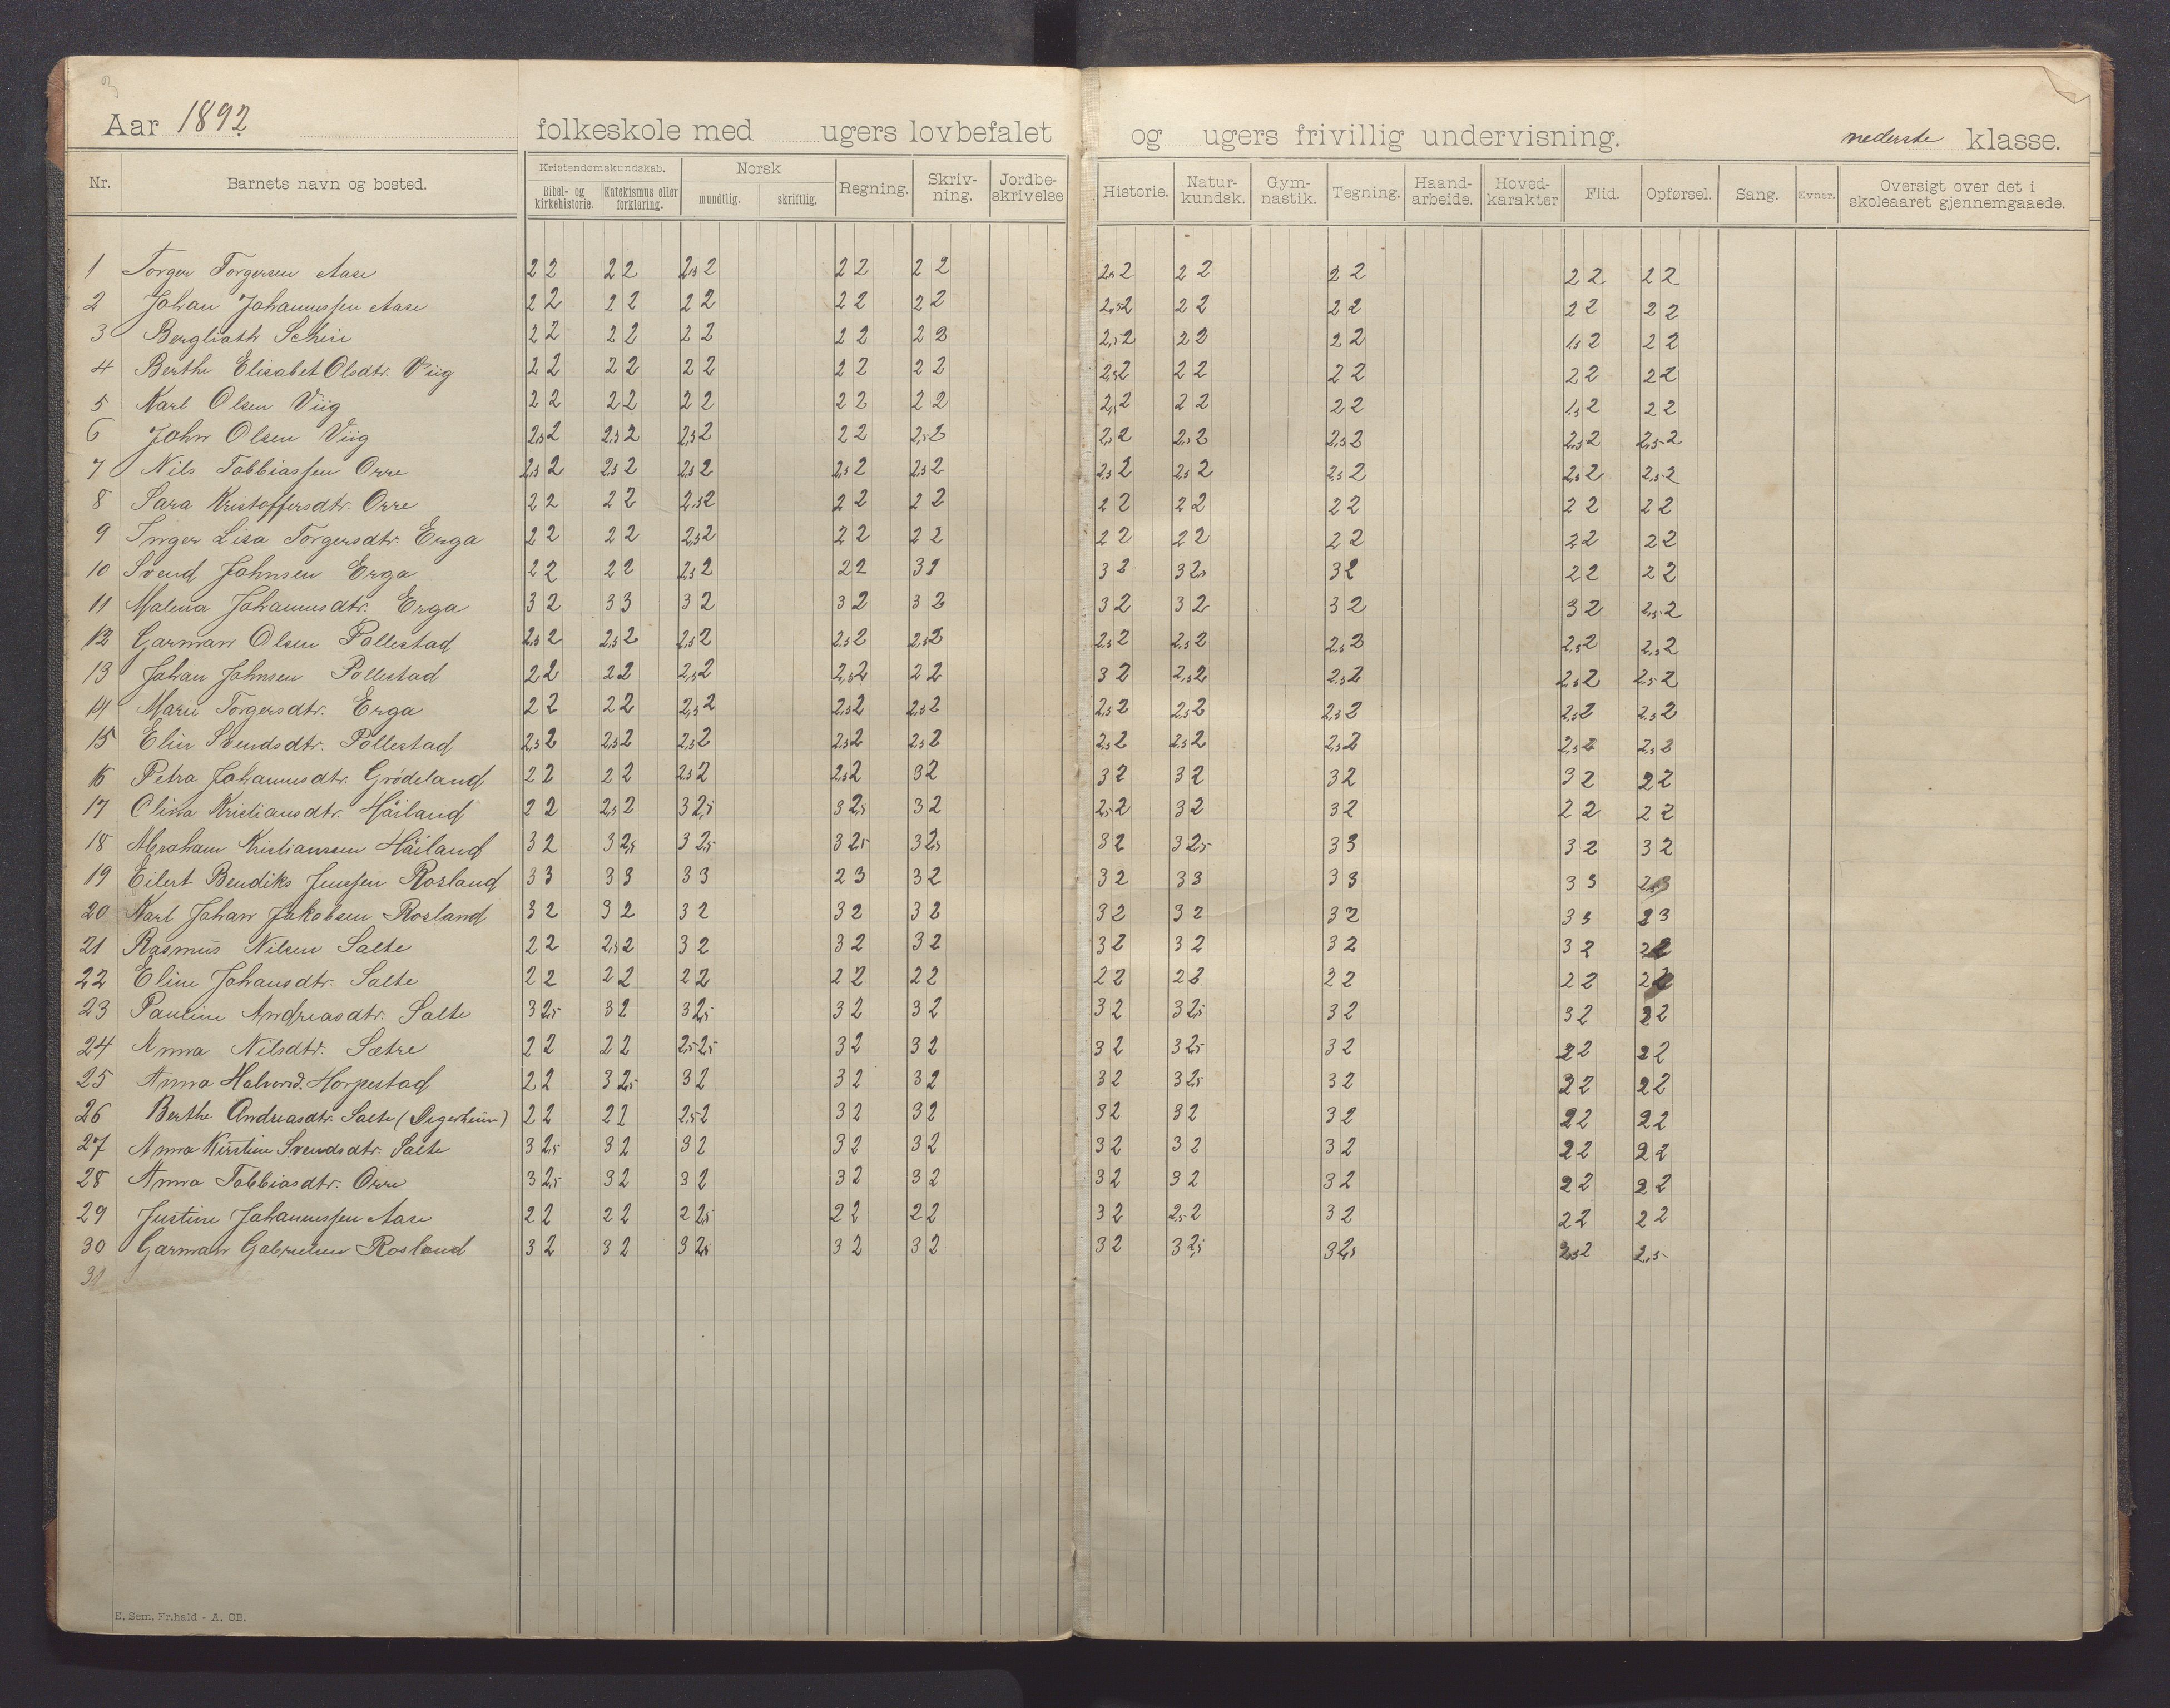 3
Aar 1892 folkeskole med ugers lovbefalet og ugers frivillig undervisning. nederste klasse.
Nr. Barnets navn og bosted. Kristendomskundskab. Bibel- og kirkehistorie. Katekismus eller forklaring. Norsk mundtlig. skriftlig. Regning. Skriv-ning. Jordbe-skrivelse Historie. Natur-kundsk. Gym-nastik. Tegning. Haand-arbeide. Hoved-karakter Flid. Opførsel. Sang. Evner. Oversigt over det i skoleaaret gjennemgaaede.
1 Torger Torgersen Aase 2 2 2 2 2,5 2 2 2 2 2 2,5 2 2 2 2 2 2 2 2 2
2 Johan Johannessen Aase 2 2 2 2 2 2 2 2 2 2 2,5 2 2 2 2 2 2 2 2 2
3 Bergliath Schei 2 2 2 2 2 2 2 2 2 3 2,5 2 2 2 2 2 1,5 2 2 2
4 Berthe Elisabet Olsdtr. Viig 2 2 2 2 2 2 2 2 2 2 2,5 2 2 2 2 2 2 2 2 2
5 Karl Olsen Viig 2 2 2 2 2 2 2 2 2 2 2,5 2 2 2 2 2 1,5 2 2 2
6 John Olsen Viig 2,5 2 2,5 2 2,5 2 2 2 2,5 2 2,5 2 2,5 2 2,5 2 2,5 2 2,5 2
7 Nils Tobbiassen Orre 2,5 2 2,5 2 2,5 2 2,5 2 2,5 2 2,5 2 2,5 2 2,5 2 2,5 2 2,5 2
8 Sara Kristoffersdtr. Orre 2 2 2 2 2,5 2 2 2 2 2 2 2 2 2 2 2 2 2 2 2
9 Inger Lisa Torgersdtr. Erga 2 2 2 2 2,5 2 2 2 2 2 2 2 2 2 2 2 2 2 2 2
10 Svend Johnsen Erga 2 2 2 2 2,5 2 2 2 3 2 3 2 3 2,5 3 2 2 2 2 2
11 Malena Johannesdtr. Erga 3 2 3 3 3 2 3 2 3 2 3 2 3 2 3 2 3 2 2,5 2
12 Garman Olsen Pollestad 2,5 2 2,5 2 2,5 2 2,5 2 2,5 2 2,5 2 2,5 2 2,5 2 2,5 2 2,5 2
13 Johan Johnsen Pollestad 2 2 2 2 2,5 2 2,5 2 2 2 3 2 2,5 2 2,5 2 2,5 2 2,5 2
14 Marie Torgersdtr. Erga 2 2 2 2 2,5 2 2,5 2 2,5 2 2,5 2 2,5 2 2,5 2 2,5 2 2,5 2
15 Elin Svendsdtr. Pollestad 2,5 2 2,5 2 2,5 2 2,5 2 2,5 2 2,5 2 2,5 2 2,5 2 2,5 2 2,5 2
16 Petra Johannesdtr. Grødeland 2 2 2 2 2,5 2 2,5 2 3 2 3 2 3 2 3 2 3 2 2 2
17 Olina Kristiansdtr. Håiland 2 2 2,5 2 3 2,5 3 2,5 3 2 2,5 2 3 2 3 2 2 2 2 2
18 Abraham Kristianssen Håiland 3 2 3 2,5 3 2,5 3 2,5 3 2,5 3 2 3 2,5 3 3 3 2 3 2
19 Eilert Bendiks Jenssen Rosland 3 3 3 3 3 3 2 3 3 2 3 2 3 3 3 3 3 3
20 Karl Johan Jakobsen Rosland 3 2 3 2 3 2 3 2 3 2 3 2 3 2 3 2 3 3 2 3
21 Rasmus Nilsen Salte 2 2 2,5 2 3 2 3 2 3 2 3 2 3 2 3 2 3 2 2 2
22 Eline Johansdtr. Salte 2 2 2 2 2 2 2 2 2 2 2 2 2 2 2 2 2 2 2 2
23 Pauline Andreasdtr. Salte 3 2,5 3 2 3 2,5 3 2 3 2 3 2 3 2,5 3 2 3 2 2 2
24 Anna Nilsdtr. Sætre 2 2 2 2 2,5 2,5 3 2 3 2 3 2 3 2,5 3 2 2 2 2 2
25 Anna Halvorsd. Horpestad 2 2 3 2,5 3 2 3 2 3 2 3 2 3 2,5 3 2 2 2 2 2
26 Berthe Andreasdtr. Salte (Segerheim) 2 2 2 2 2,5 2 3 2 3 2 3 2 3 2 3 2 2 2 2 2
27 Anna Kirstine Svendsdtr. Salte 3 2,5 3 2 3 2 3 2 3 2 3 2 3 2 3 2 2 2 2 2
28 Anna Tobbiasdtr. Orre 3 2,5 3 2 3 2 3 2 3 2 3 2 3 2 3 2 2 2 2 2
29 Justine Johannessen Aase 2 2 2 2 2 2,5 2 2 2 2 3 2 2,5 2 3 2 2 2 2 2
30 Garman Gabrielsen Rosland 3 2 3 2 3 2,5 3 2 3 2 3 2 3 2,5 3 2,5 2,5 2 2,5
31
E. Sem, Fr.hald - A. CB.